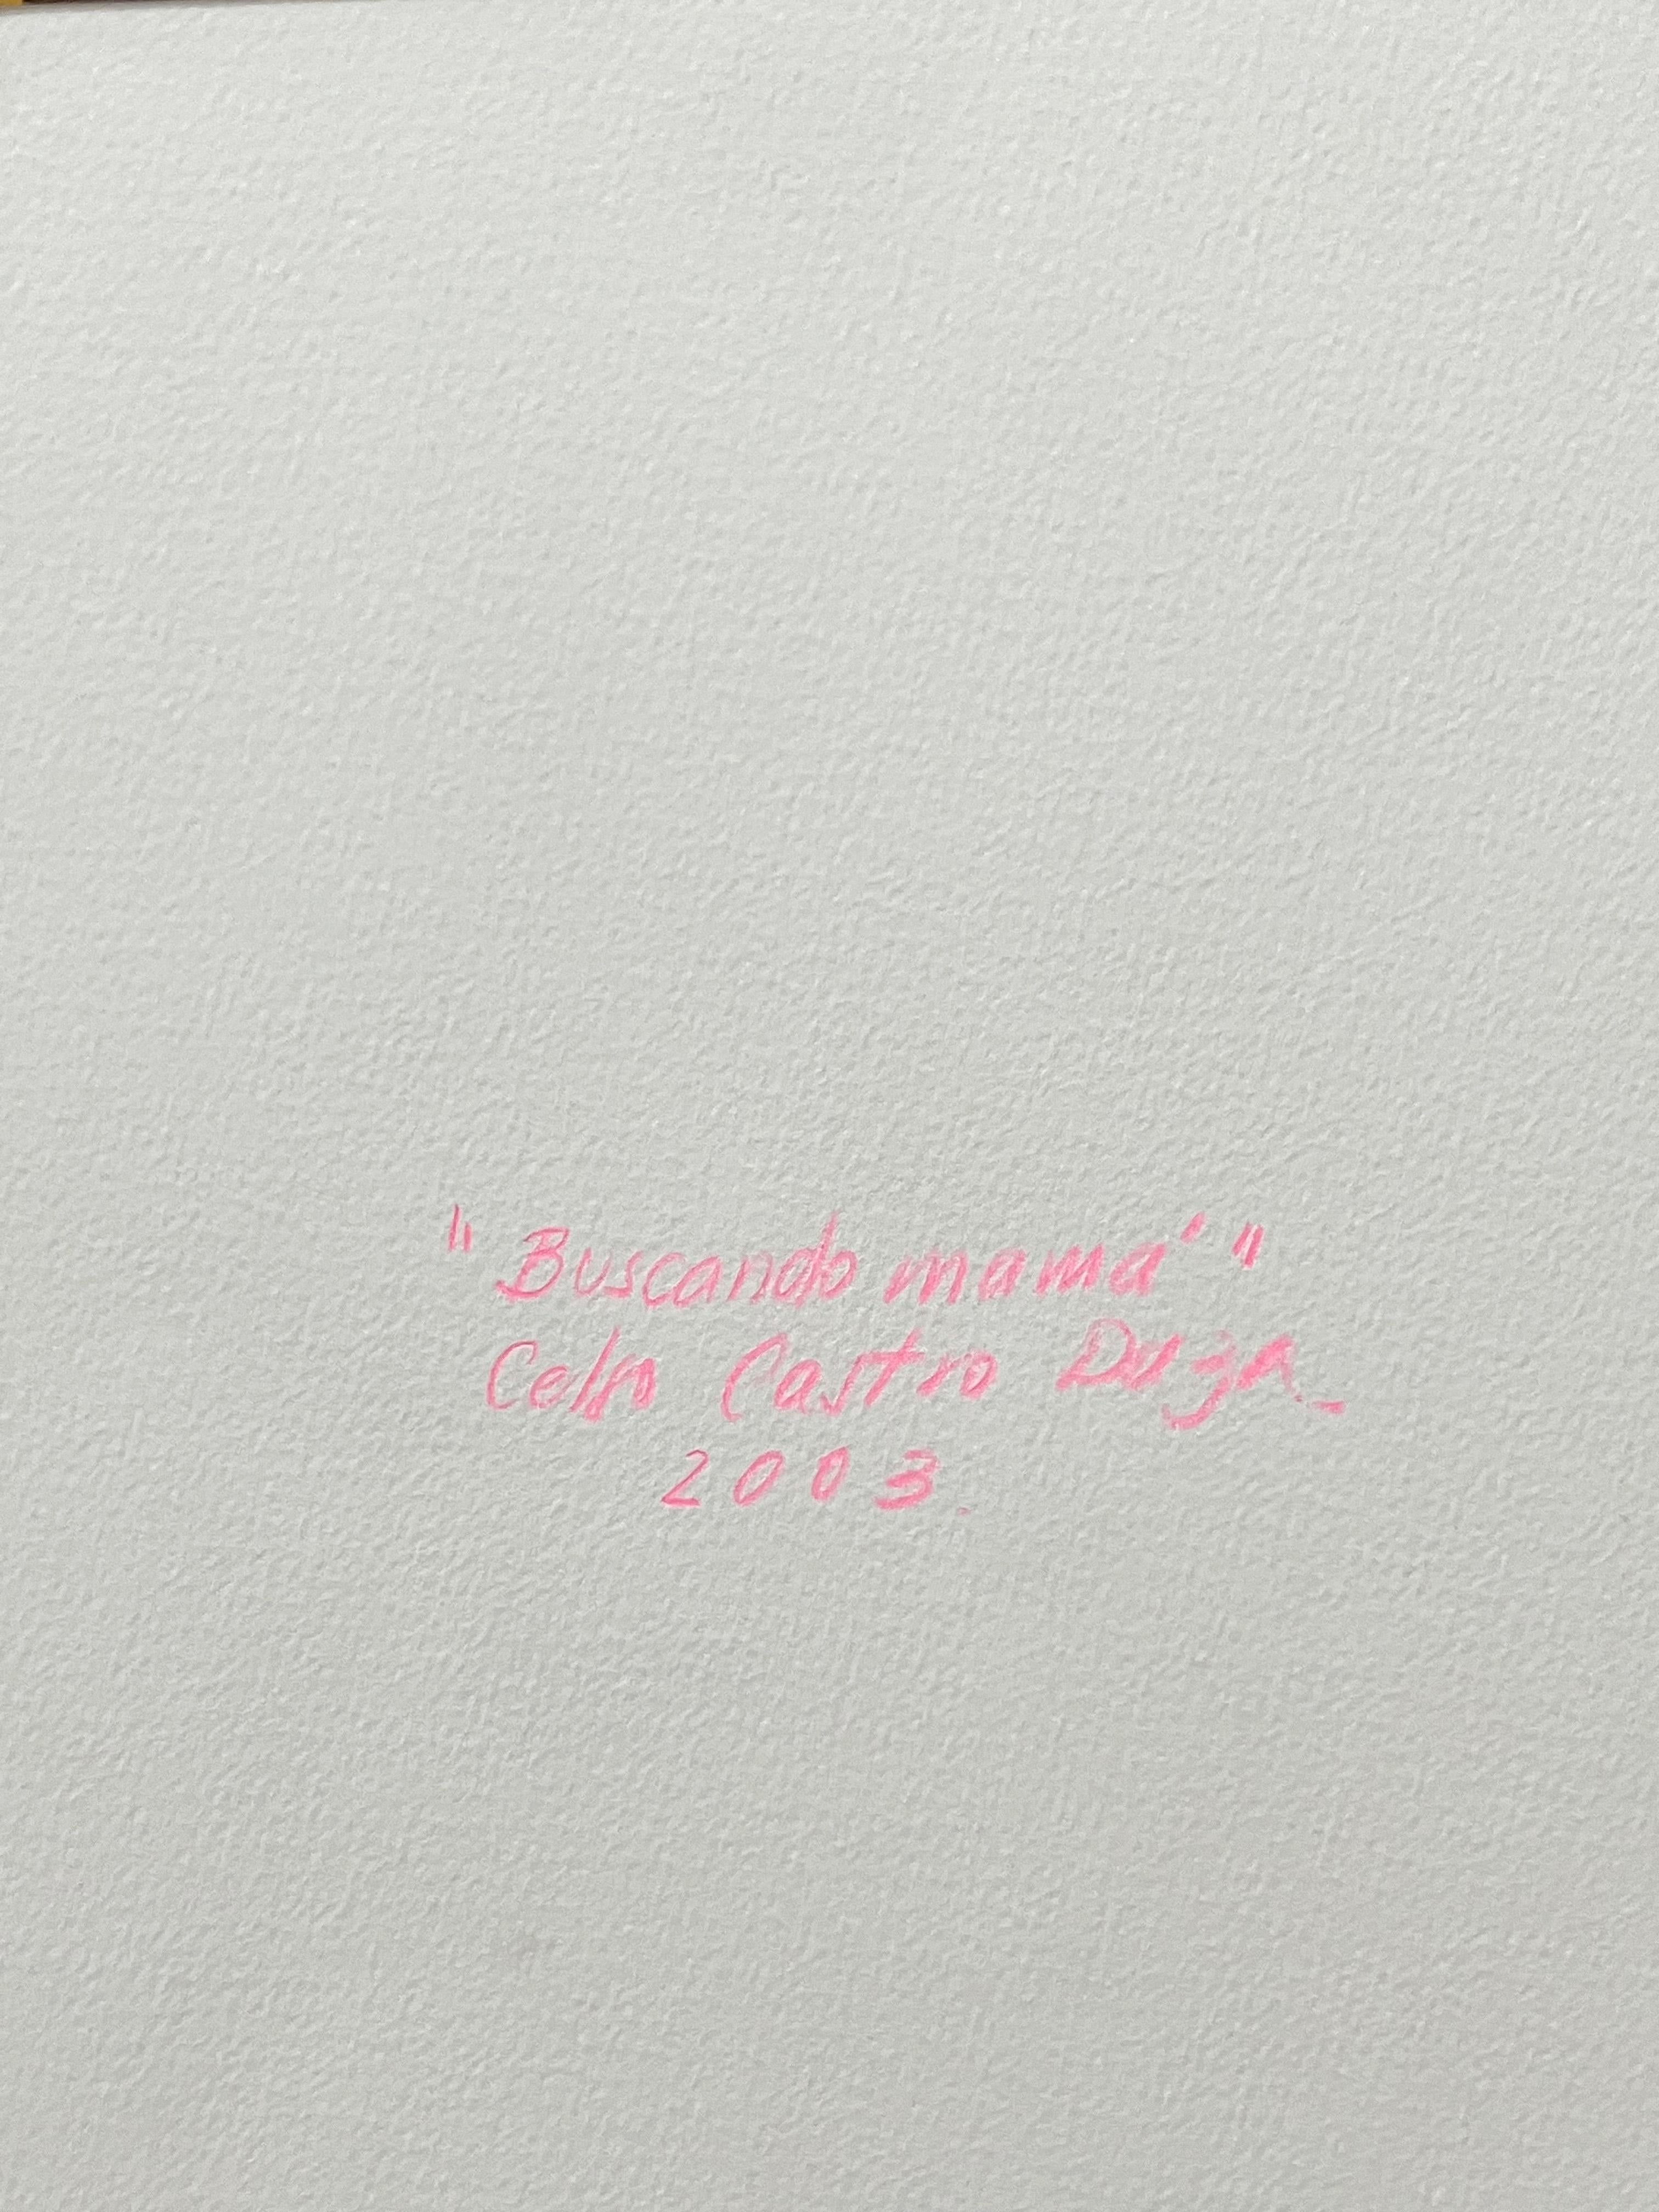 "Buscando mamá"
Celso Castro Daza
2003.